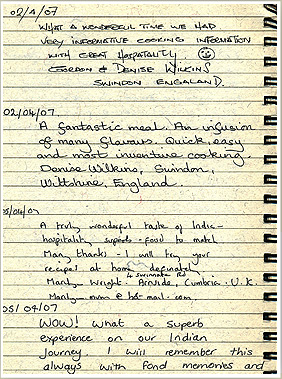 02/4/07
WHAT A WONDERFUL TIME WE HAD
VERY INFORMATIVE COOKING INFORMATION
WITH GREAT HOSPITALITY
GORDON & DENISE WILKINS
SWINDON ENGALAND.
02/04/07
A fantastic meal. An infusion
of many flavours. Quick, easy
and most inventive cooking
Denise Wilkins, Swindon,
Wiltshire, England.
/04/07
A truly wonderful taste of India -
hospitality superb - food to match
Many thanks - I will try your
recipes at home definately.
Wright. Arnside, Cumbria. U.K.
05/04/07
WOW! What a superb
experience on our Indian
Journey. I will remember this
always with fond memories and